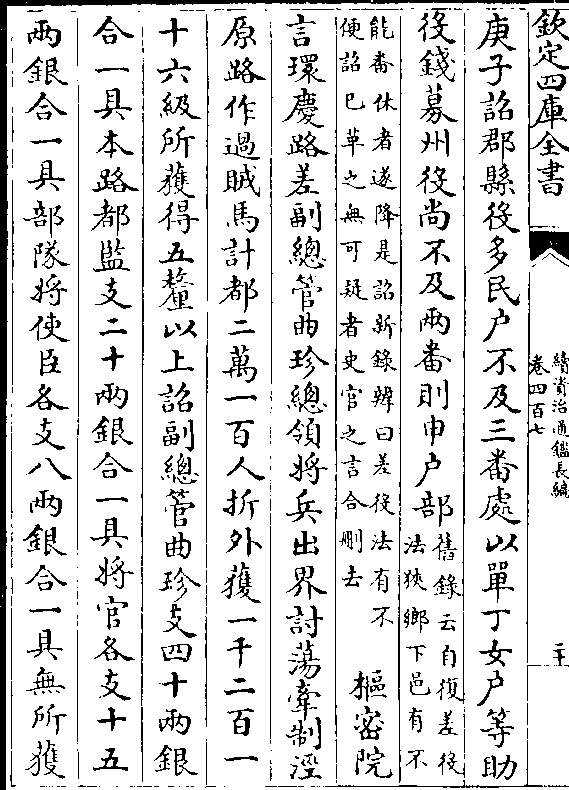 欽定四庫全書
續資治通鑑長編
卷四百七
二十
庚子詔郡縣役多民户不及三番處以單丁女户等助
役錢募州役尚不及兩番則申户部
舊錄云自復差役
法狹鄉下邑有不
能番休者遂降是詔新錄辨曰差役法有不
便詔已革之無可疑者史官之言合刪去
樞密院
言環慶路差副總管曲珍總領將兵出界討蕩牽制涇
原路作過賊馬計都二萬一百人折外獲一千二百一
十六級所獲得五釐以上詔副總管曲珍支四十兩銀
合一具本路都監支二十兩銀合一具將官各支十五
兩銀合一具部隊將使臣各支八兩銀合一具無所獲